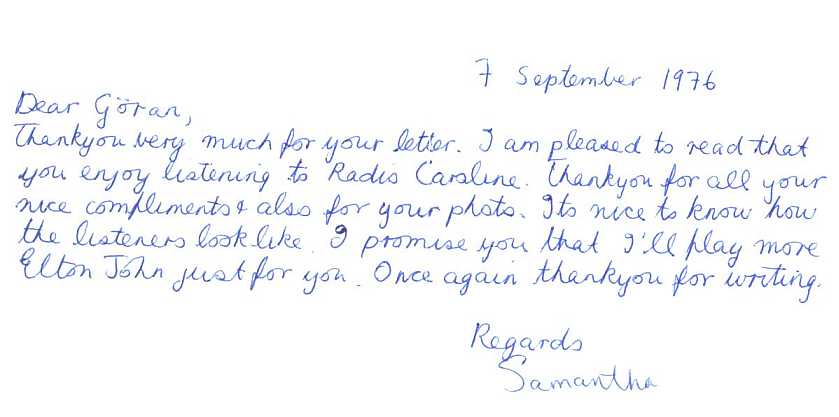 7 September 1976
Dear Göran,
Thankyou very much for your letter. I am pleased to read that
you enjoy listening to Radio Caroline. Thankyou for all your
nice compliments & also for your photo. Its nice to know how
the listeners look like. I promise you that I'll play more
Elton John just for you. Once again thankyou for writing.
Regards
Samantha